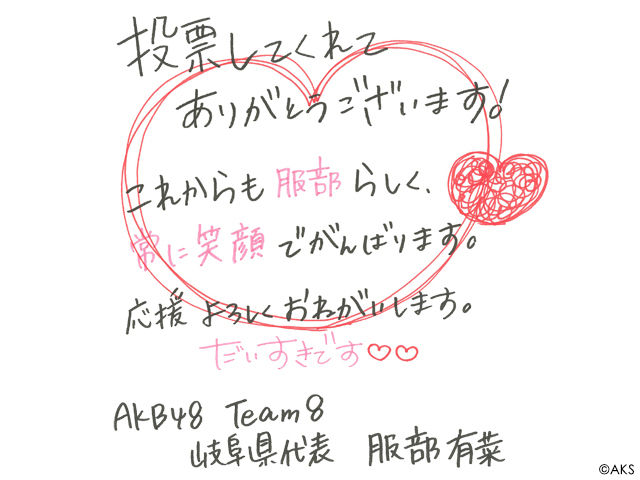 投票してくれて
ありがとうございます!
これからも服部らしく、
常に笑顔でがんばります。
応援よろしくおねがいします。
だいすきです♡♡
AKB48 Team8
岐阜県代表 服部有菜
©AKS